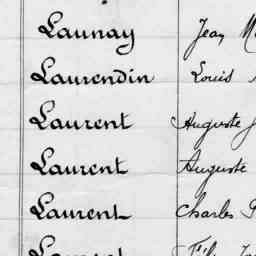 Launay Jean
Laurendin Louis
Laurent Auguste J
Laurent Auguste
Laurent Charles
Laurent